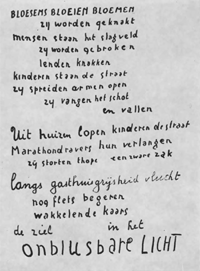 BLOESEMS BLOEIEN BLOEMEN
zy worden geknakt
mensen staan het slagveld
zy worden gebroken
lenden knakken
kinderen staan de straat
zy spreiden armen open
zy vangen het schot
en vallen
Uit huizen lopen kinderen de straat
Marathondravers hun verlangen
zy storten thope een zware zak
langs gasthuisgrijsheid vlecht
nog flets begeren
wakkelende kaars
de ziel in het
ONBLUSBARE LICHT